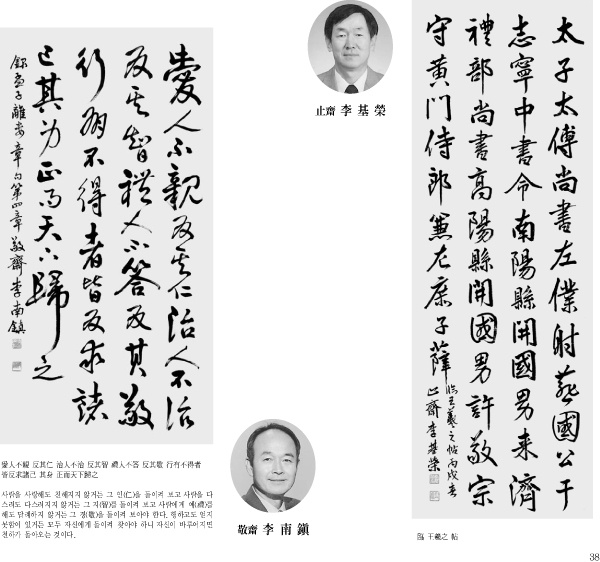 愛人不親反其仁治人不治
反其智禮人不答反其敬
行有不得者皆反求諸
己其身正而天下歸之
錄孟子離婁章句第四章 敬齋 李南鎭
愛人不親 反其仁 治人不治 反其智 禮人不答 反其敬 行有不得者
皆反求諸己 其身 正而天下歸之
사람을 사랑해도 친해지지 않거든 그 인(仁)을 돌이켜 보고 사람을 다
스려도 다스려지지 않거든 그 지(智)를 돌이켜 보고 사람에게 예(禮)를
해도 답례하지 않거든 그 경(敬)을 돌이켜 보아야 한다. 행하고도 얻지
못함이 있거든 모두 자신에게 돌이켜 찾아야 하니 자신이 바루어지면
천하가 돌아오는 것이다.
止齋 李基榮
敬齋 李南鎭
太子太傅尚書左僕射燕國公于
志寧中書令南陽縣開國男来濟
禮部尚書高陽縣開國男許敬宗
守黄門侍郎兼左庶子薛
臨王羲之帖丙戌春
止齋 李基榮
臨 王羲之 帖
38